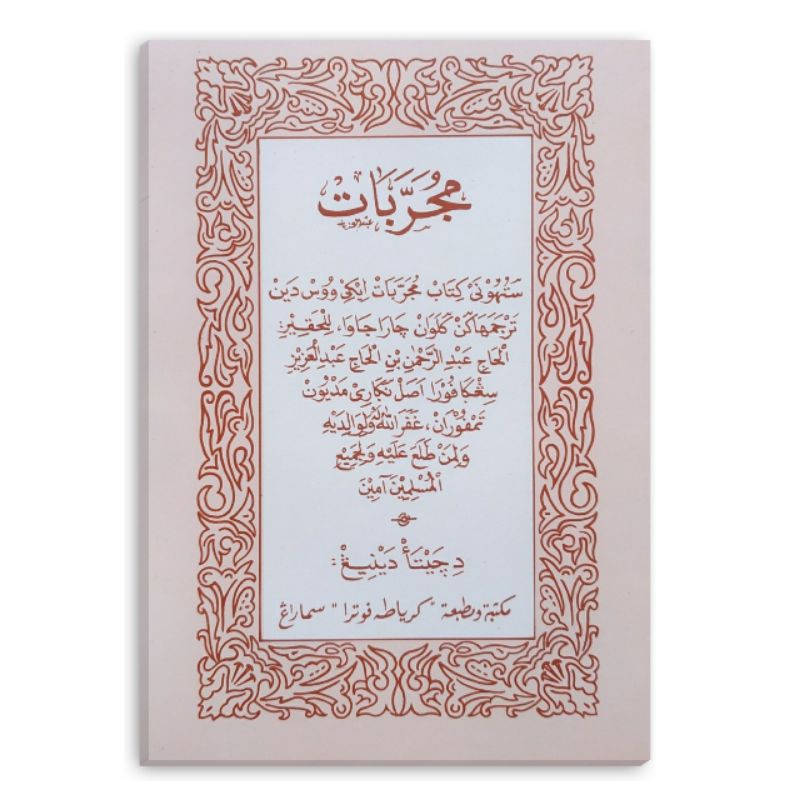 مُجَرَّبَات
سَتُهُوْنَيْ كِتَابْ مُجَرَّبَاتْ اِيْكِيْ وُوْسْ دَيْنْ
تَرْجَمَهَاكَنْ كَلَوَانْ چَارَا جَاوَا، لِلْحَقِيْرِ
الْحَاجِ عَبْدِ الرَّحْمٰنِ بْنِ الْحَاجِ عَبْدِ الْعَزِيْزِ
سِڠْكَافُوْرَا اَصَلْ نَݢَارِيْ مَدْيُوْنْ
تَمْفُوْرَانْ، غَفَرَ اللّٰهُ لَهُ وَلِوَالِدَيْهِ
وَلِمَنْ طَلَعَ عَلَيْهِ وَلِجَمِيْعِ
الْمُسْلِمِيْنَ آمِيْنَ
دِچَيْتَأْ دَيْنِيْڠْ:
مكتبة ومطبعة "كرياطه فوترا" سماراڠ